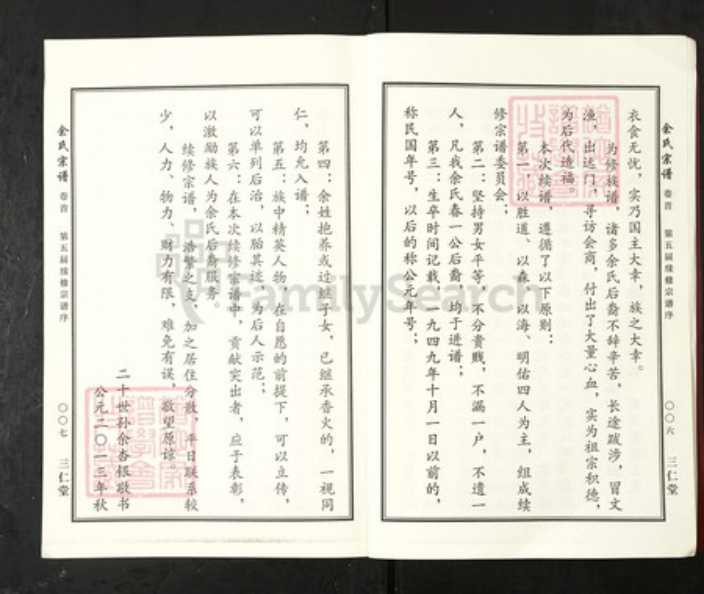 余氏宗谱 卷首 第五届续修宗谱序 〇〇六 三仁堂
衣食无忧，实乃国主大幸，族之大幸。
为修族谱，诸多余氏后裔不辞辛苦，长途跋涉，冒文
渔，出远门，寻访会商，付出了大量心血，实为祖宗积德，
为后代造福。
本次续谱，遵循了以下原则：
第一：以胜道、以森、以海、明佑四人为主，组成续
修宗谱委员会；
第二：坚持男女平等，不分贵贱，不漏一户，不遗一
人，凡我余氏春一公后裔，均于进谱；
第三：生卒时间记载，一九四九年十月一日以前的，
称民国年号，以后的称公元年号；
第四：余姓抱养或过继子女，已继承香火的，一视同
仁，均允入谱；
第五：族中精英人物，在自愿的前提下，可以立传，
可以单列后治，以胎其述，为后人示范；
第六：在本次续修宗谱中，贡献突出者，应于表彰，
以激励族人为余氏后裔服务
续修宗谱，浩繁之支，加之居住分散，平日联系较
少，人力、物力、财力有限，难免有误，敬望原谅。
二十世孙余杏银敬书
公元二〇一三年秋
余氏宗谱 卷首 第五届续修宗谱序 〇〇七 三仁堂
FamilySearch